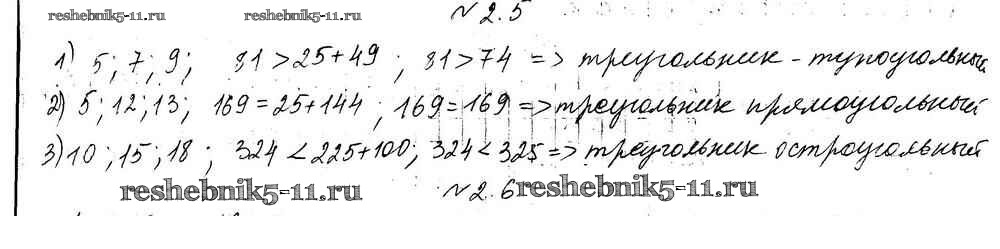 reshebnik5-11.ru № 2.5 reshebnik5-11.ru
1) 5; 7; 9; 81 > 25+49; 81 > 74 => треугольник - тупоугольный
2) 5; 12; 13; 169 = 25+144; 169 = 169 => треугольник прямоугольный
3) 10; 15; 18; 324 < 225+100; 324 < 325 => треугольник остроугольный
reshebnik5-11.ru № 2.6 reshebnik5-11.ru